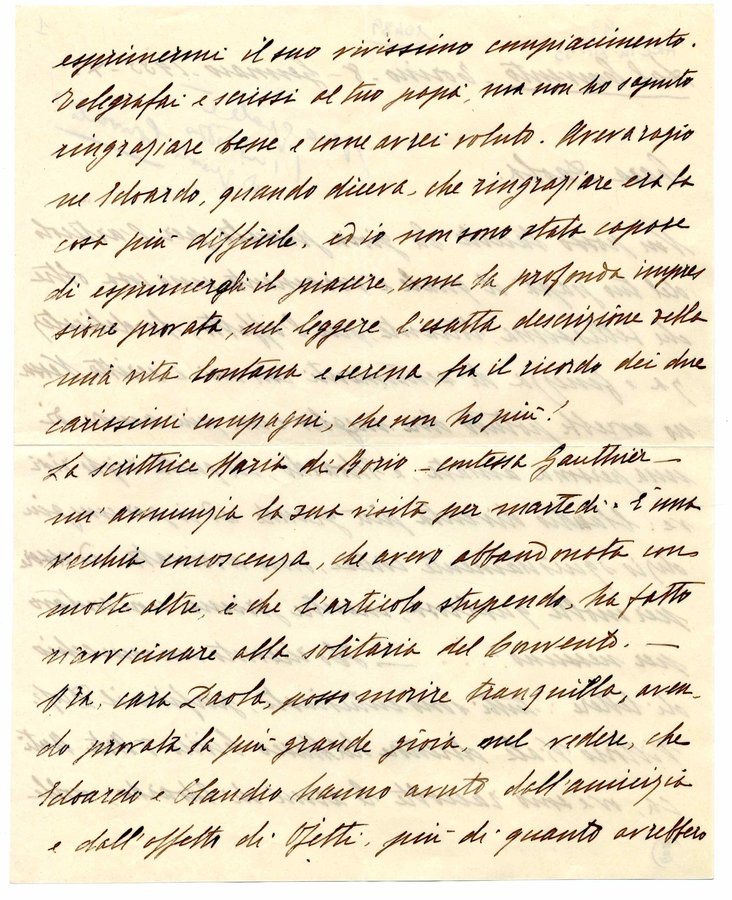 esprimermi il suo vivissimo compiacimento.
Telegrafai e scrissi al tuo papà, ma non ho saputo
ringraziare bene e come avrei voluto. Aveva ragio
ne Edoardo, quando diceva, che ringraziare era la
cosa più difficile, ed io non sono stata capace
di esprimergli il piacere, come la profonda impres
sione provata, nel leggere l'esatta descrizione della
mia vita lontana e serena fra il ricordo dei due
carissimi compagni, che non ho più!
La scrittrice Maria di Borio – contessa Gauthier –
m'annunzia la sua visita per martedì. È una
vecchia conoscenza, che avevo abbandonata con
molte altre, e che l'articolo stupendo, ha fatto
riavvicinare alla solitaria del Convento. –
Ora, cara Paola, posso morire tranquilla, aven-
do provata la più grande gioia, nel vedere, che
Edoardo e Claudio hanno avuto dall'amicizia
e dall'affetto di Ojetti, più di quanto avrebbero